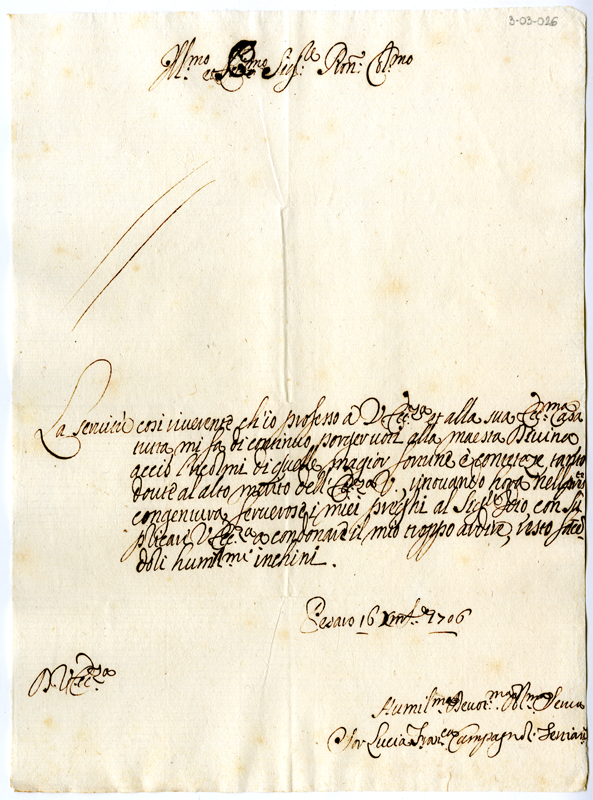 3-03-026
Ill.mo et Ecc.mo Sig.re Pron: Col.mo
La servitù così riverente ch'io professo à V. Ecc.za et alla sua Ecc.ma Casa
tutta mi fà di continuo porger voti alla maestà Divina
acciò li colmi di quelle magior fortune e contetaze tanto
dovute al alto merito dell'Ecc.za V., inovando hora nella
congentura fervorose i miei prieghi al Sig.re Idio, con su
plicar V. Ecc.za a condonare il mio troppo ardire, resto facē
doli humil.mi inchini.
Pesaro 16 Xmb.e 1706
D. V. Ecc.za
Humil.ma Devot.ma Obl.ma Serva
Suor Lucia Fran.ca Campagnoli